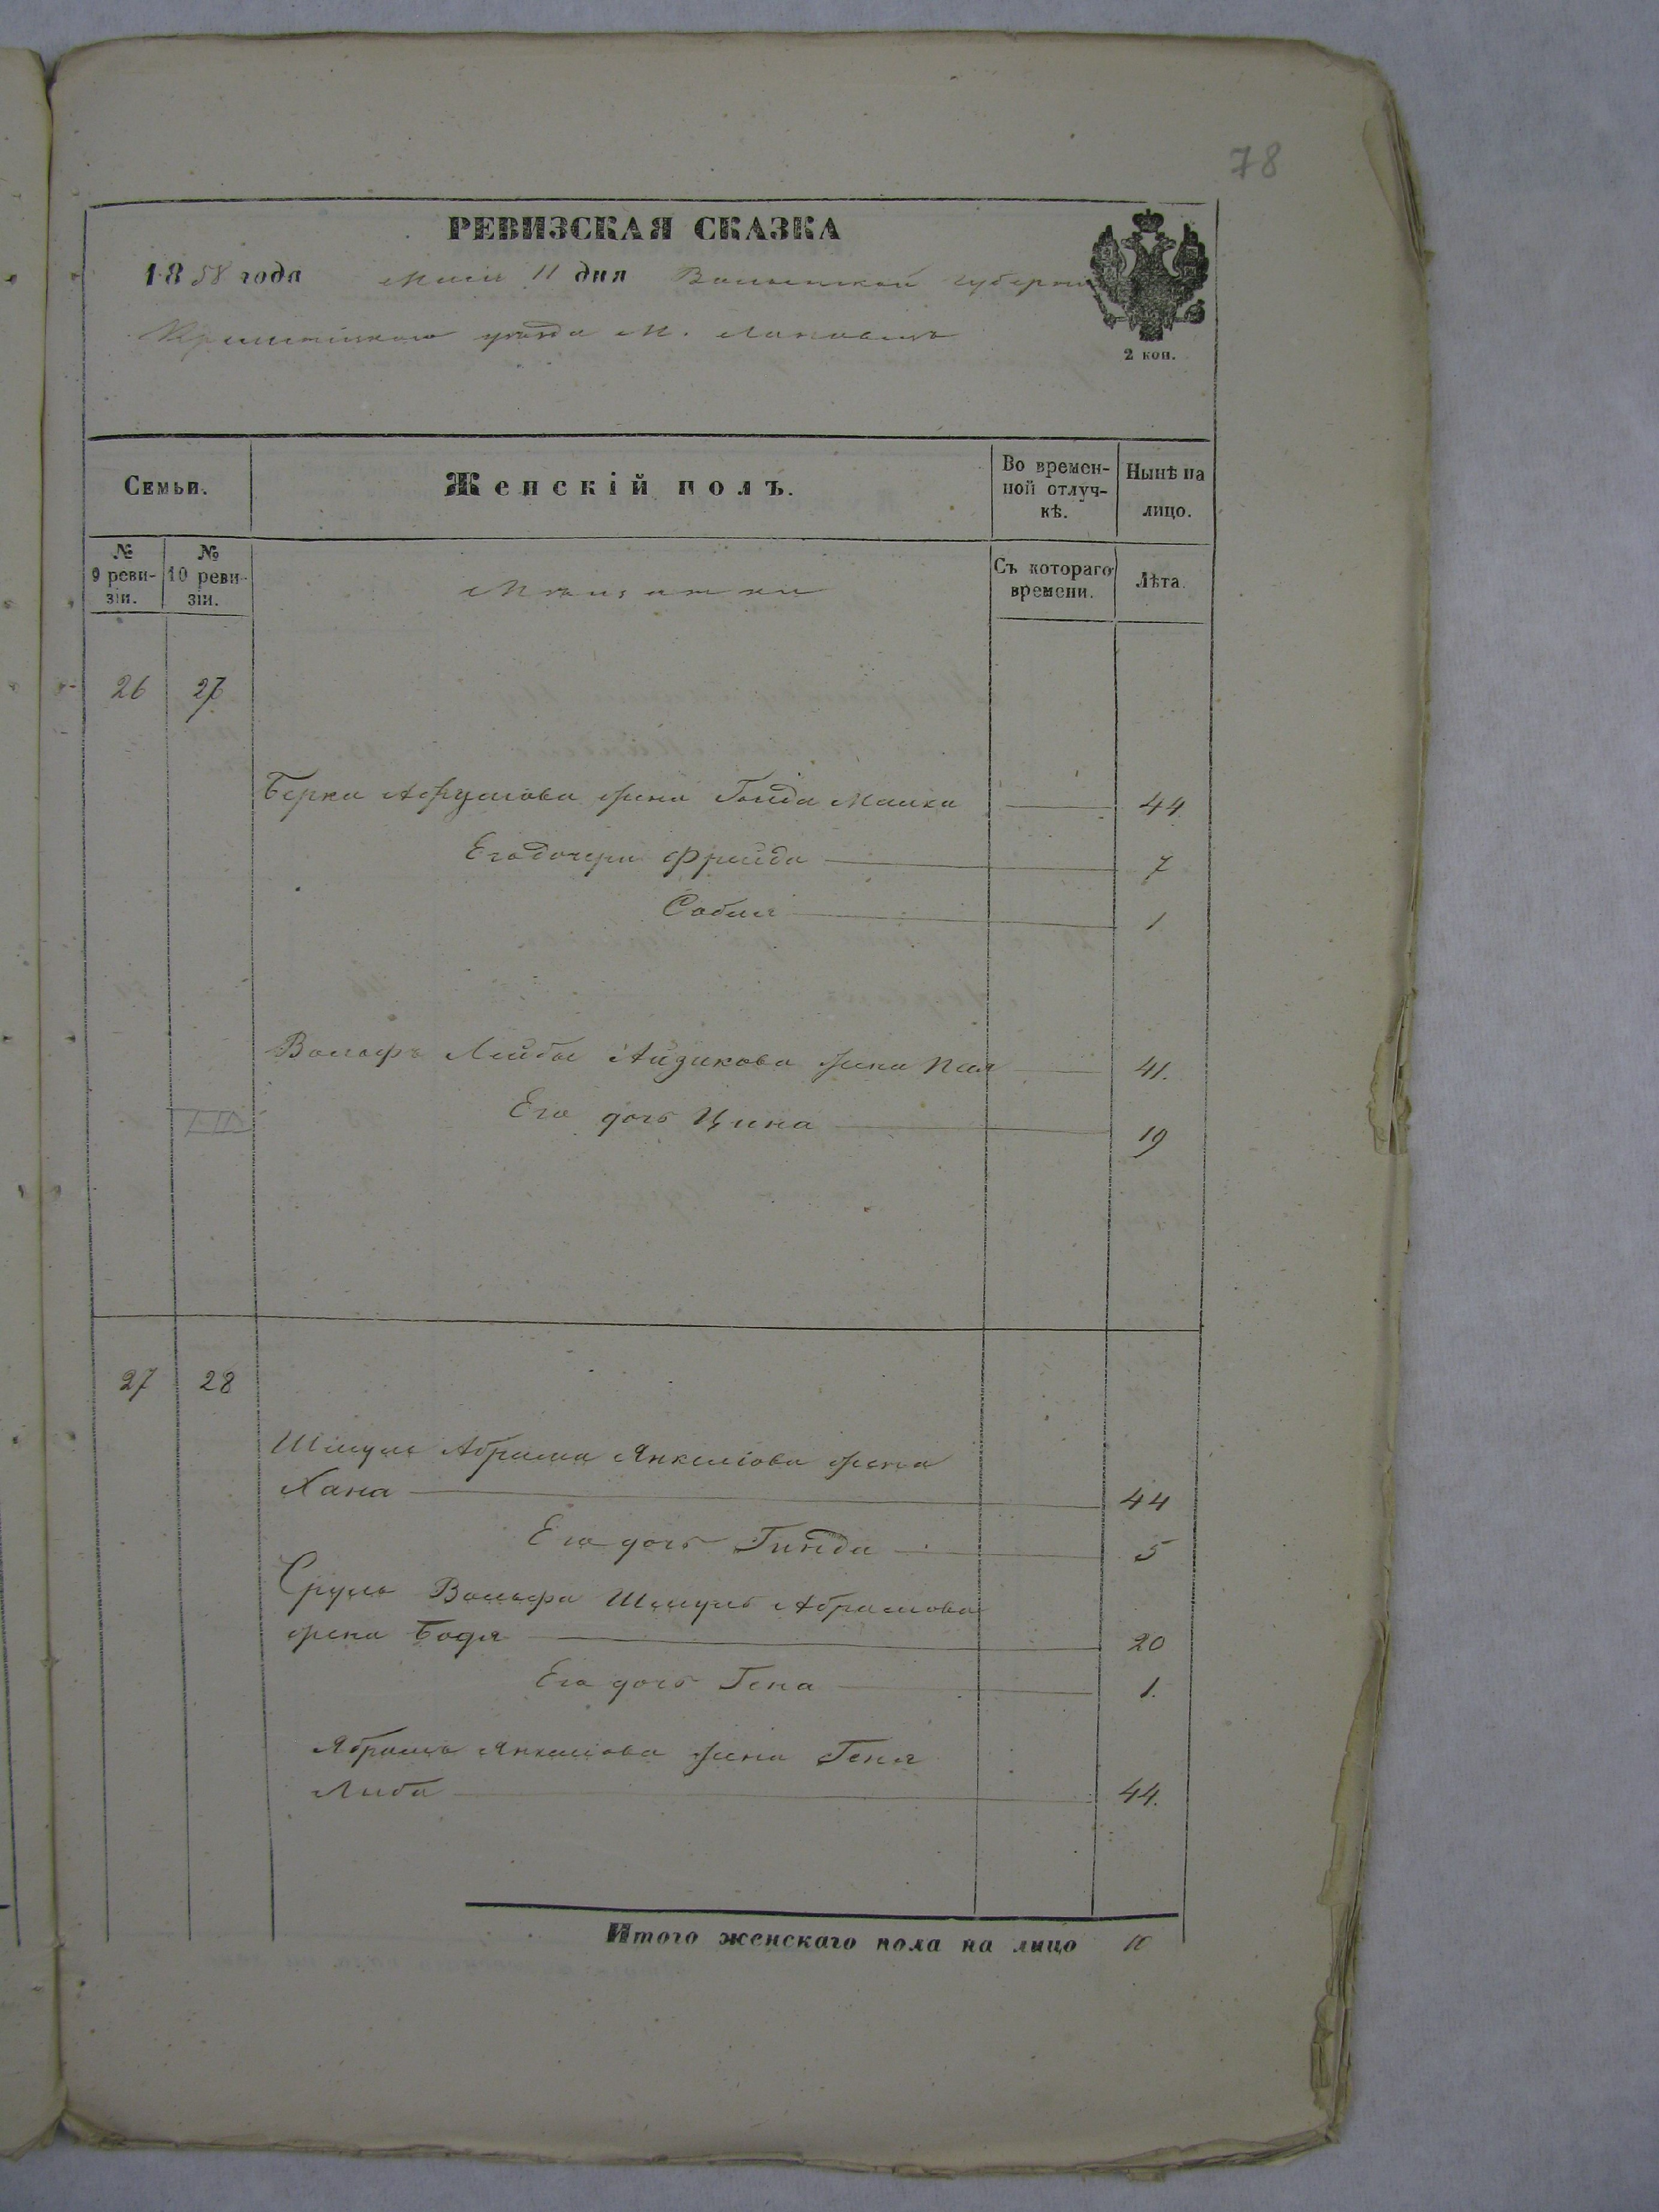 78
РЕВИЗСКАЯ СКАЗКА
1858 года Маія 11 дня Волынской губерніи
Кременецкаго уѣзда М. Лановецъ
2 коп.
Семьи.
Женскій полъ.
Во времен-
ной отлуч-
кѣ.
Нынѣ на
лицо.
№
9 реви-
зіи.
№
10 реви-
зіи.
Мѣщанки
Съ котораго
времени.
Лѣта.
26 27
Берка Абрумова жена Гольда Малка 44
Его дочери Фрейда 7
Собля 1
Вольфъ Лейбы Айзикова жена Пая 41.
Его дочь Цина 19
27 28
Шмуля Абрама Янкелiова жена
Хана 44
Его дочь Гинда 5
Сруль Вольфа Шмуль Абрамова
жена Бодя 20
Его дочь Гена 1.
Абрама Янкелiова жена Геня
Либа 44.
Итого женскаго пола на лицо 10